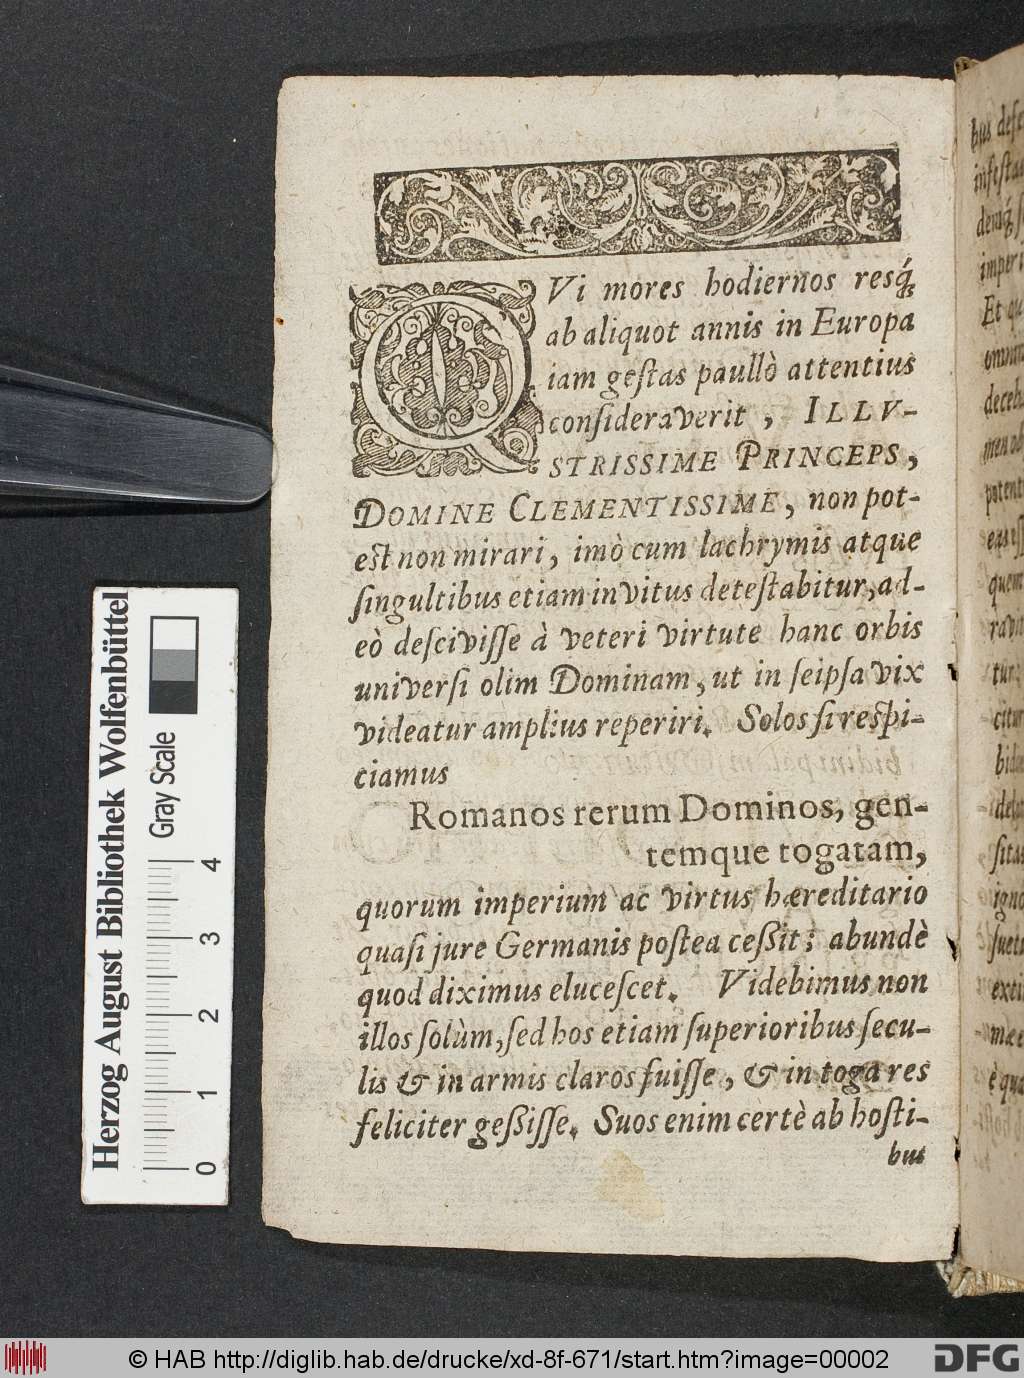 QVi mores hodiernos resq́;
ab aliquot annis in Europa
iam geſtas paullò attentius
conſideraverit, ILLV-
STRISSIME PRINCEPS,
DOMINE CLEMENTISSIME, non pot-
eſt non mirari, imò cum lachrymis atque
ſingultibus etiam invitus deteſtabitur, ad-
eò deſciviſſe à veteri virtute hanc orbis
univerſi olim Dominam, ut in ſeipſa vix
videatur amplius reperiri. Solos ſi reſpi-
ciamus
Romanos rerum Dominos, gen-
temque togatam,
quorum imperium ac virtus hæreditario
quaſi jure Germanis poſtea ceßit: abundè
quod diximus eluceſcet. Videbimus non
illos ſolùm, ſed hos etiam ſuperioribus ſecu-
lis & in armis claros fuiſſe, & in toga res
feliciter geßiſſe. Suos enim certè ab hoſti-
bus
Herzog August Bibliothek Wolfenbüttel
Gray Scale
0 1 2 3 4
© HAB http://diglib.hab.de/drucke/xd-8f-671/start.htm?image=00002
DFG